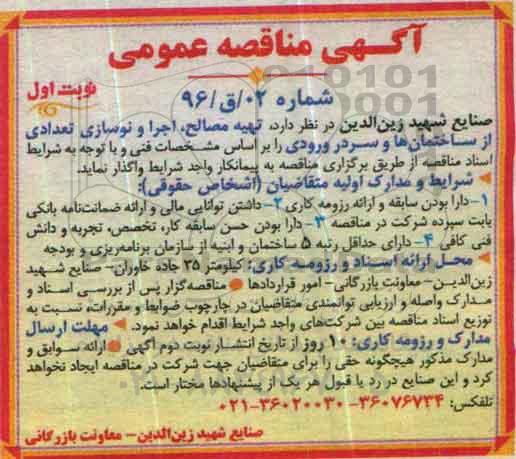 آگهی مناقصه عمومی
نوبت اول
شماره ۰۲/ق/۹۶
صنایع شهید زین‌الدین در نظر دارد، تهیه مصالح، اجرا و نوسازی تعدادی
از ساختمان‌ها و سردر ورودی را بر اساس مشخصات فنی و با توجه به شرایط
اسناد مناقصه از طریق برگزاری مناقصه به پیمانکار واجد شرایط واگذار نماید.
شرایط و مدارک اولیه متقاضیان (اشخاص حقوقی):
۱-دارا بودن سابقه و ارائه رزومه کاری ۲-داشتن توانایی مالی و ارائه ضمانت‌نامه بانکی
بابت سپرده شرکت در مناقصه ۳- دارا بودن حسن سابقه کار، تخصص، تجربه و دانش
فنی کافی ۴-دارای حداقل رتبه ۵ ساختمان و ابنیه از سازمان برنامه‌ریزی و بودجه
محل ارائه اسناد و رزومه کاری: کیلومتر ۳۵ جاده خاوران- صنایع شهید
زین‌الدین-معاونت بازرگانی- امور قراردادها ● مناقصه‌گزار پس از بررسی اسناد و
مدارک واصله و ارزیابی توانمندی متقاضیان در چارچوب ضوابط و مقررات، نسبت به
توزیع اسناد مناقصه بین شرکت‌های واجد شرایط اقدام خواهد نمود. مهلت ارسال
مدارک و رزومه کاری: ۱۰ روز از تاریخ انتشار نوبت دوم آگهی ● ارائه سوابق و
مدارک مذکور هیچگونه حقی را برای متقاضیان جهت شرکت در مناقصه ایجاد نخواهد
کرد و این صنایع در رد یا قبول هر یک از پیشنهادها مختار است.
تلفکس: ۳۶۰۷۶۷۳۴-۳۶۰۲۰۰۳۰-۰۲۱
صنایع شهید زین‌الدین- معاونت بازرگانی